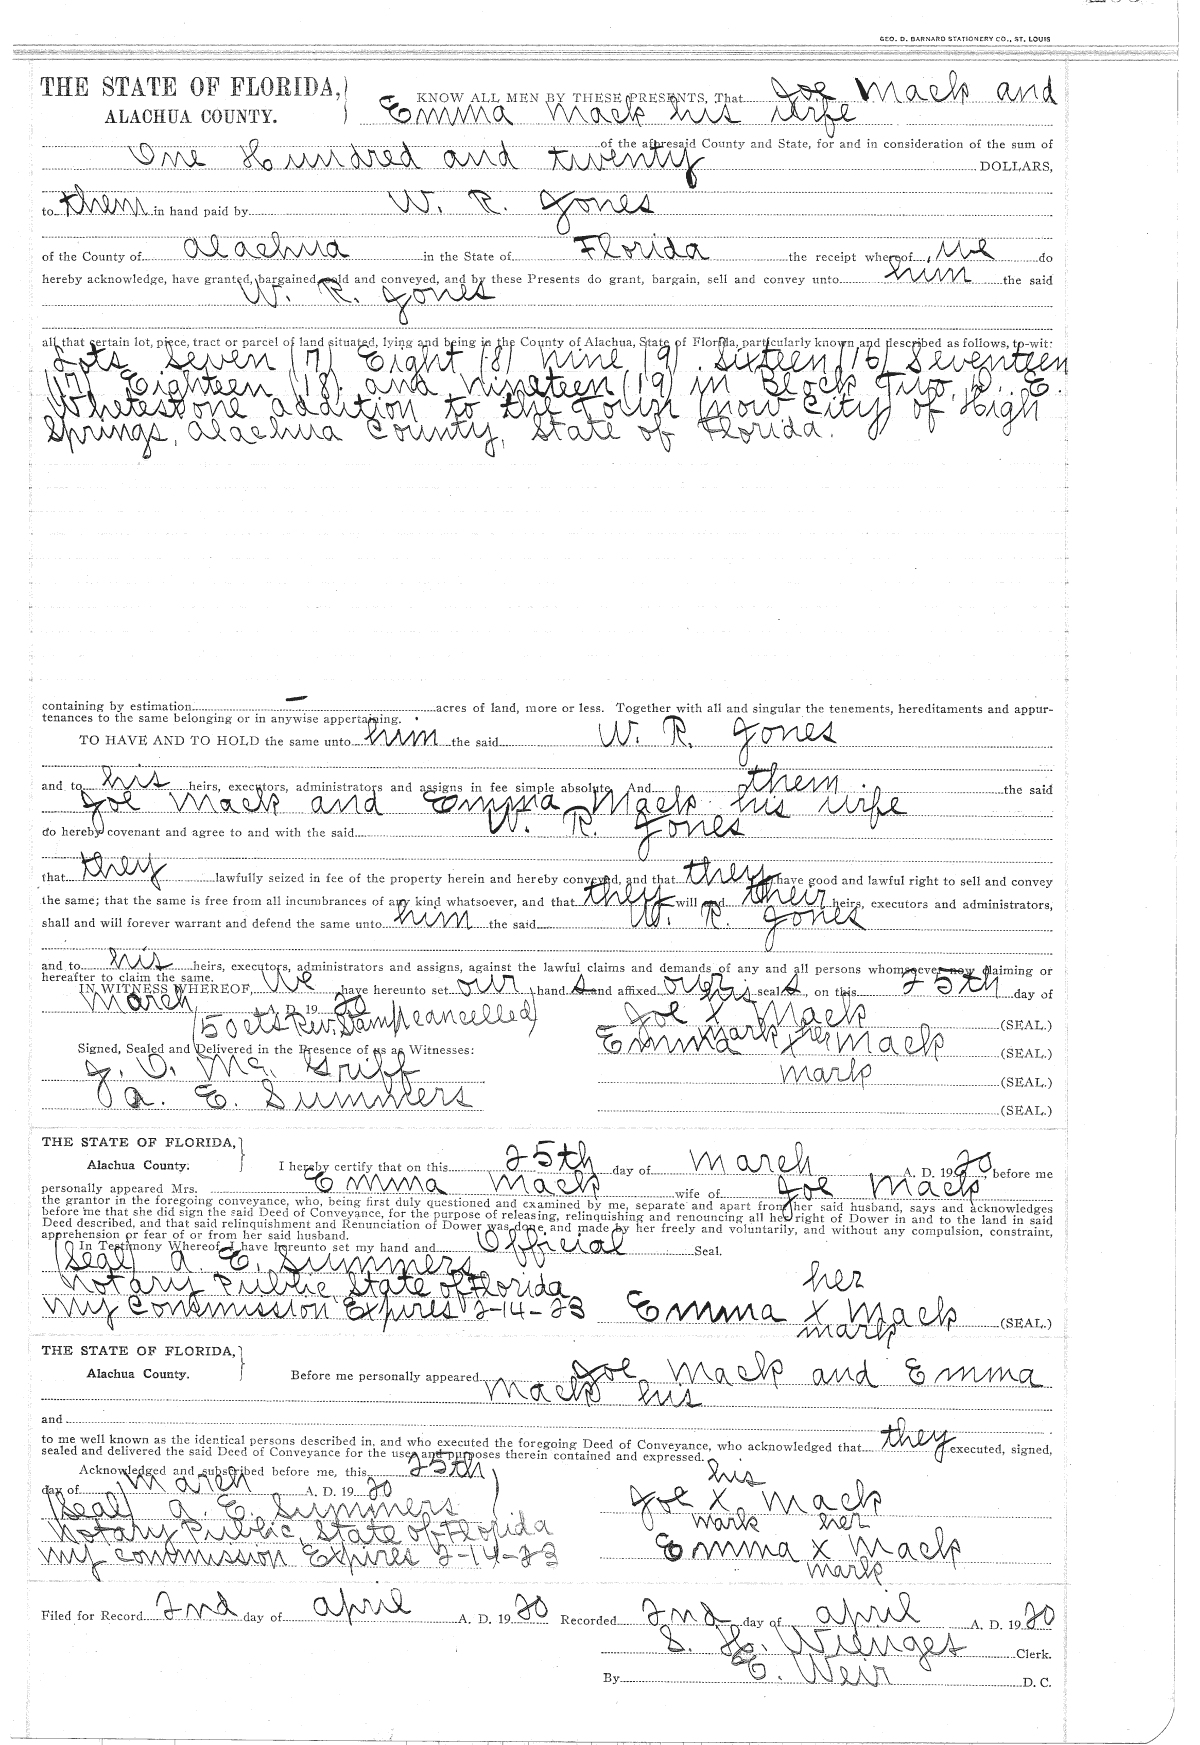 GEO. D. BARNARD STATIONERY CO., ST. LOUIS
THE STATE OF FLORIDA,
ALACHUA COUNTY.
KNOW ALL MEN BY THESE PRESENTS, That Joe Mack and
Emma Mack his wife
of the aforesaid County and State, for and in consideration of the sum of
One Hundred and twenty DOLLARS,
to them in hand paid by W. R. Jones
of the County of Alachua in the State of Florida the receipt whereof, we do
hereby acknowledge, have granted, bargained, sold and conveyed, and by these Presents do grant, bargain, sell and convey unto him the said
W. R. Jones
all that certain lot, piece, tract or parcel of land situated, lying and being in the County of Alachua, State of Florida, particularly known and described as follows, to-wit:
Lots Seven (7) Eight (8) Nine (9) Sixteen (16) Seventeen
(17) Eighteen (18) and Nineteen (19) in Block Two, E.
Whetestone addition to the Town (now City) of High
Springs, Alachua County, State of Florida.
containing by estimation — acres of land, more or less. Together with all and singular the tenements, hereditaments and appur-
tenances to the same belonging or in anywise appertaining.
TO HAVE AND TO HOLD the same unto him the said W. R. Jones
and to his heirs, executors, administrators and assigns in fee simple absolute. And them the said
Joe Mack and Emma Mack his wife
do hereby covenant and agree to and with the said W. R. Jones
that they lawfully seized in fee of the property herein and hereby conveyed, and that they have good and lawful right to sell and convey
the same; that the same is free from all incumbrances of any kind whatsoever, and that they will and their heirs, executors and administrators,
shall and will forever warrant and defend the same unto him the said W. R. Jones
and to his heirs, executors, administrators and assigns, against the lawful claims and demands of any and all persons whomsoever now claiming or
hereafter to claim the same.
IN WITNESS WHEREOF, We have hereunto set our hands and affixed our seals, on this 25th day of
March A. D. 1920
his
(50cts Rev. Stamp cancelled) Joe X Mack (SEAL.)
mark her
Emma X Mack (SEAL.)
Signed, Sealed and Delivered in the Presence of us as Witnesses:
J. D. Mc. Griff mark (SEAL.)
A. E. Summers (SEAL.)
THE STATE OF FLORIDA,
Alachua County.
I hereby certify that on this 25th day of March A. D. 1920, before me
personally appeared Mrs. Emma Mack wife of Joe Mack
the grantor in the foregoing conveyance, who, being first duly questioned and examined by me, separate and apart from her said husband, says and acknowledges
before me that she did sign the said Deed of Conveyance, for the purpose of releasing, relinquishing and renouncing all her right of Dower in and to the land in said
Deed described, and that said relinquishment and Renunciation of Dower was done and made by her freely and voluntarily, and without any compulsion, constraint,
apprehension or fear of or from her said husband.
In Testimony Whereof, I have hereunto set my hand and Official Seal.
(Seal) A. E. Summers
Notary Public, State of Florida her
My Commission Expires 2-14-23 Emma X Mack (SEAL.)
mark
THE STATE OF FLORIDA,
Alachua County.
Before me personally appeared Joe Mack and Emma
Mack his
and
to me well known as the identical persons described in, and who executed the foregoing Deed of Conveyance, who acknowledged that they executed, signed,
sealed and delivered the said Deed of Conveyance for the uses and purposes therein contained and expressed.
Acknowledged and subscribed before me, this 25th
day of March A. D. 1920 his
(Seal) A. E. Summers Joe X Mack
mark her
Notary Public, State of Florida
My Commission Expires 2-14-23 Emma X Mack
mark
Filed for Record 2nd day of April A. D. 1920 Recorded 2nd day of April A. D. 1920
S. H. Wienges Clerk.
By E. Weir D. C.